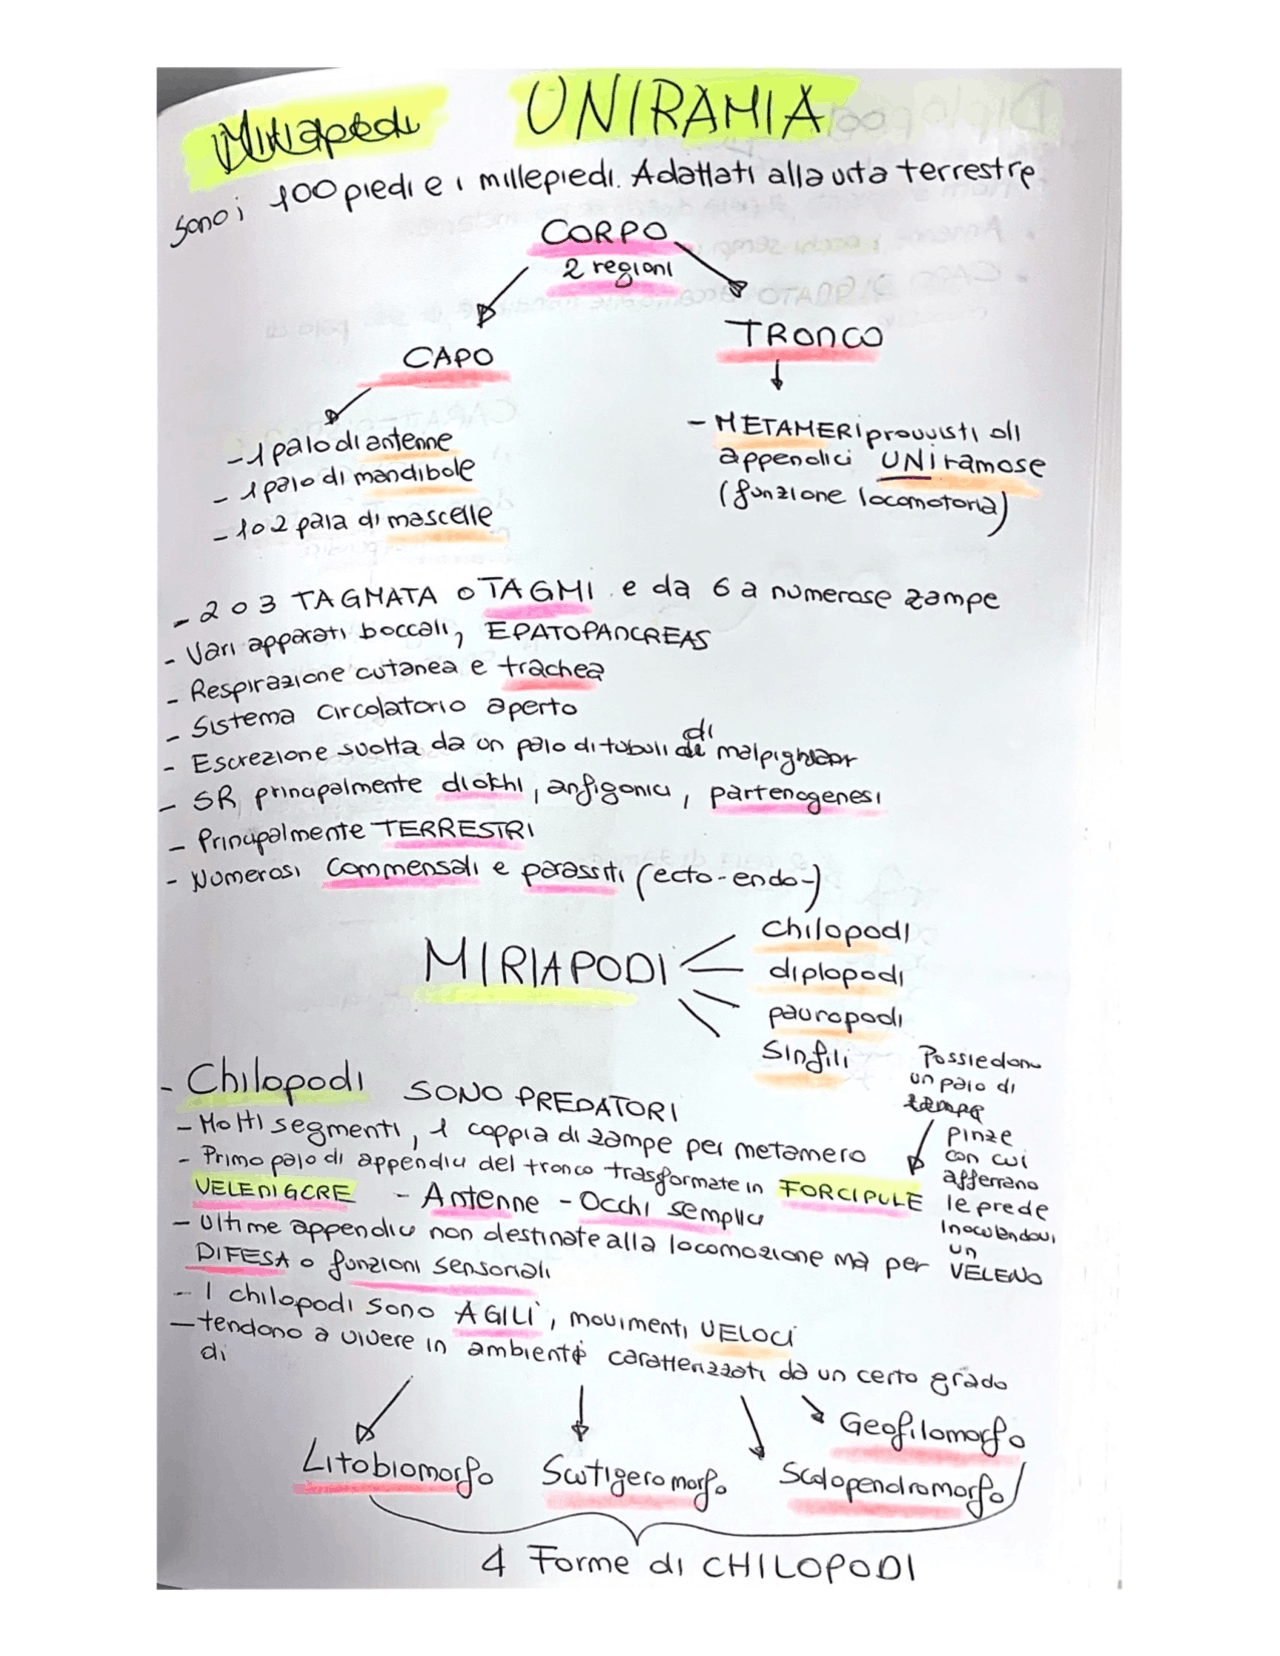 Miriapodi UNIRAMIA
sono i 100 piedi e i millepiedi. Adattati alla vita terrestre
CORPO
2 regioni
CAPO
TRONCO
- 1 paio di antenne
- 1 paio di mandibole
- 1 o 2 paia di mascelle
- METAMERI provvisti di
appendici UNiramose
(funzione locomotoria)
- 2 o 3 TAGMATA o TAGMI e da 6 a numerose zampe
- Vari apparati boccali, EPATOPANCREAS
- Respirazione cutanea e trachea
- Sistema circolatorio aperto
- Escrezione svolta da un paio di tubuli di
- SR, principalmente dioichi, anfigonici, partenogenesi
- Principalmente TERRESTRI
- Numerosi commensali e parassiti (ecto-endo-)
MIRIAPODI
chilopodi
diplopodi
pauropodi
Sinfili
- Chilopodi SONO PREDATORI
- Molti segmenti, 1 coppia di zampe per metamero
- Primo paio di appendici del tronco trasformate in FORCIPULE
VELENIGERE - Antenne - Occhi semplici
- Ultime appendici non destinate alla locomozione ma per
DIFESA o funzioni sensoriali
Possiedono
un paio di
pinze
con cui
afferrano
le prede
inoculandovi
un
VELENO
- I chilopodi sono AGILI, movimenti VELOCI
- tendono a vivere in ambienti caratterizzati da un certo grado
di
Litobiomorfo
Scutigeromorfo
Scolopendromorfo
Geofilomorfo
4 Forme di CHILOPODI